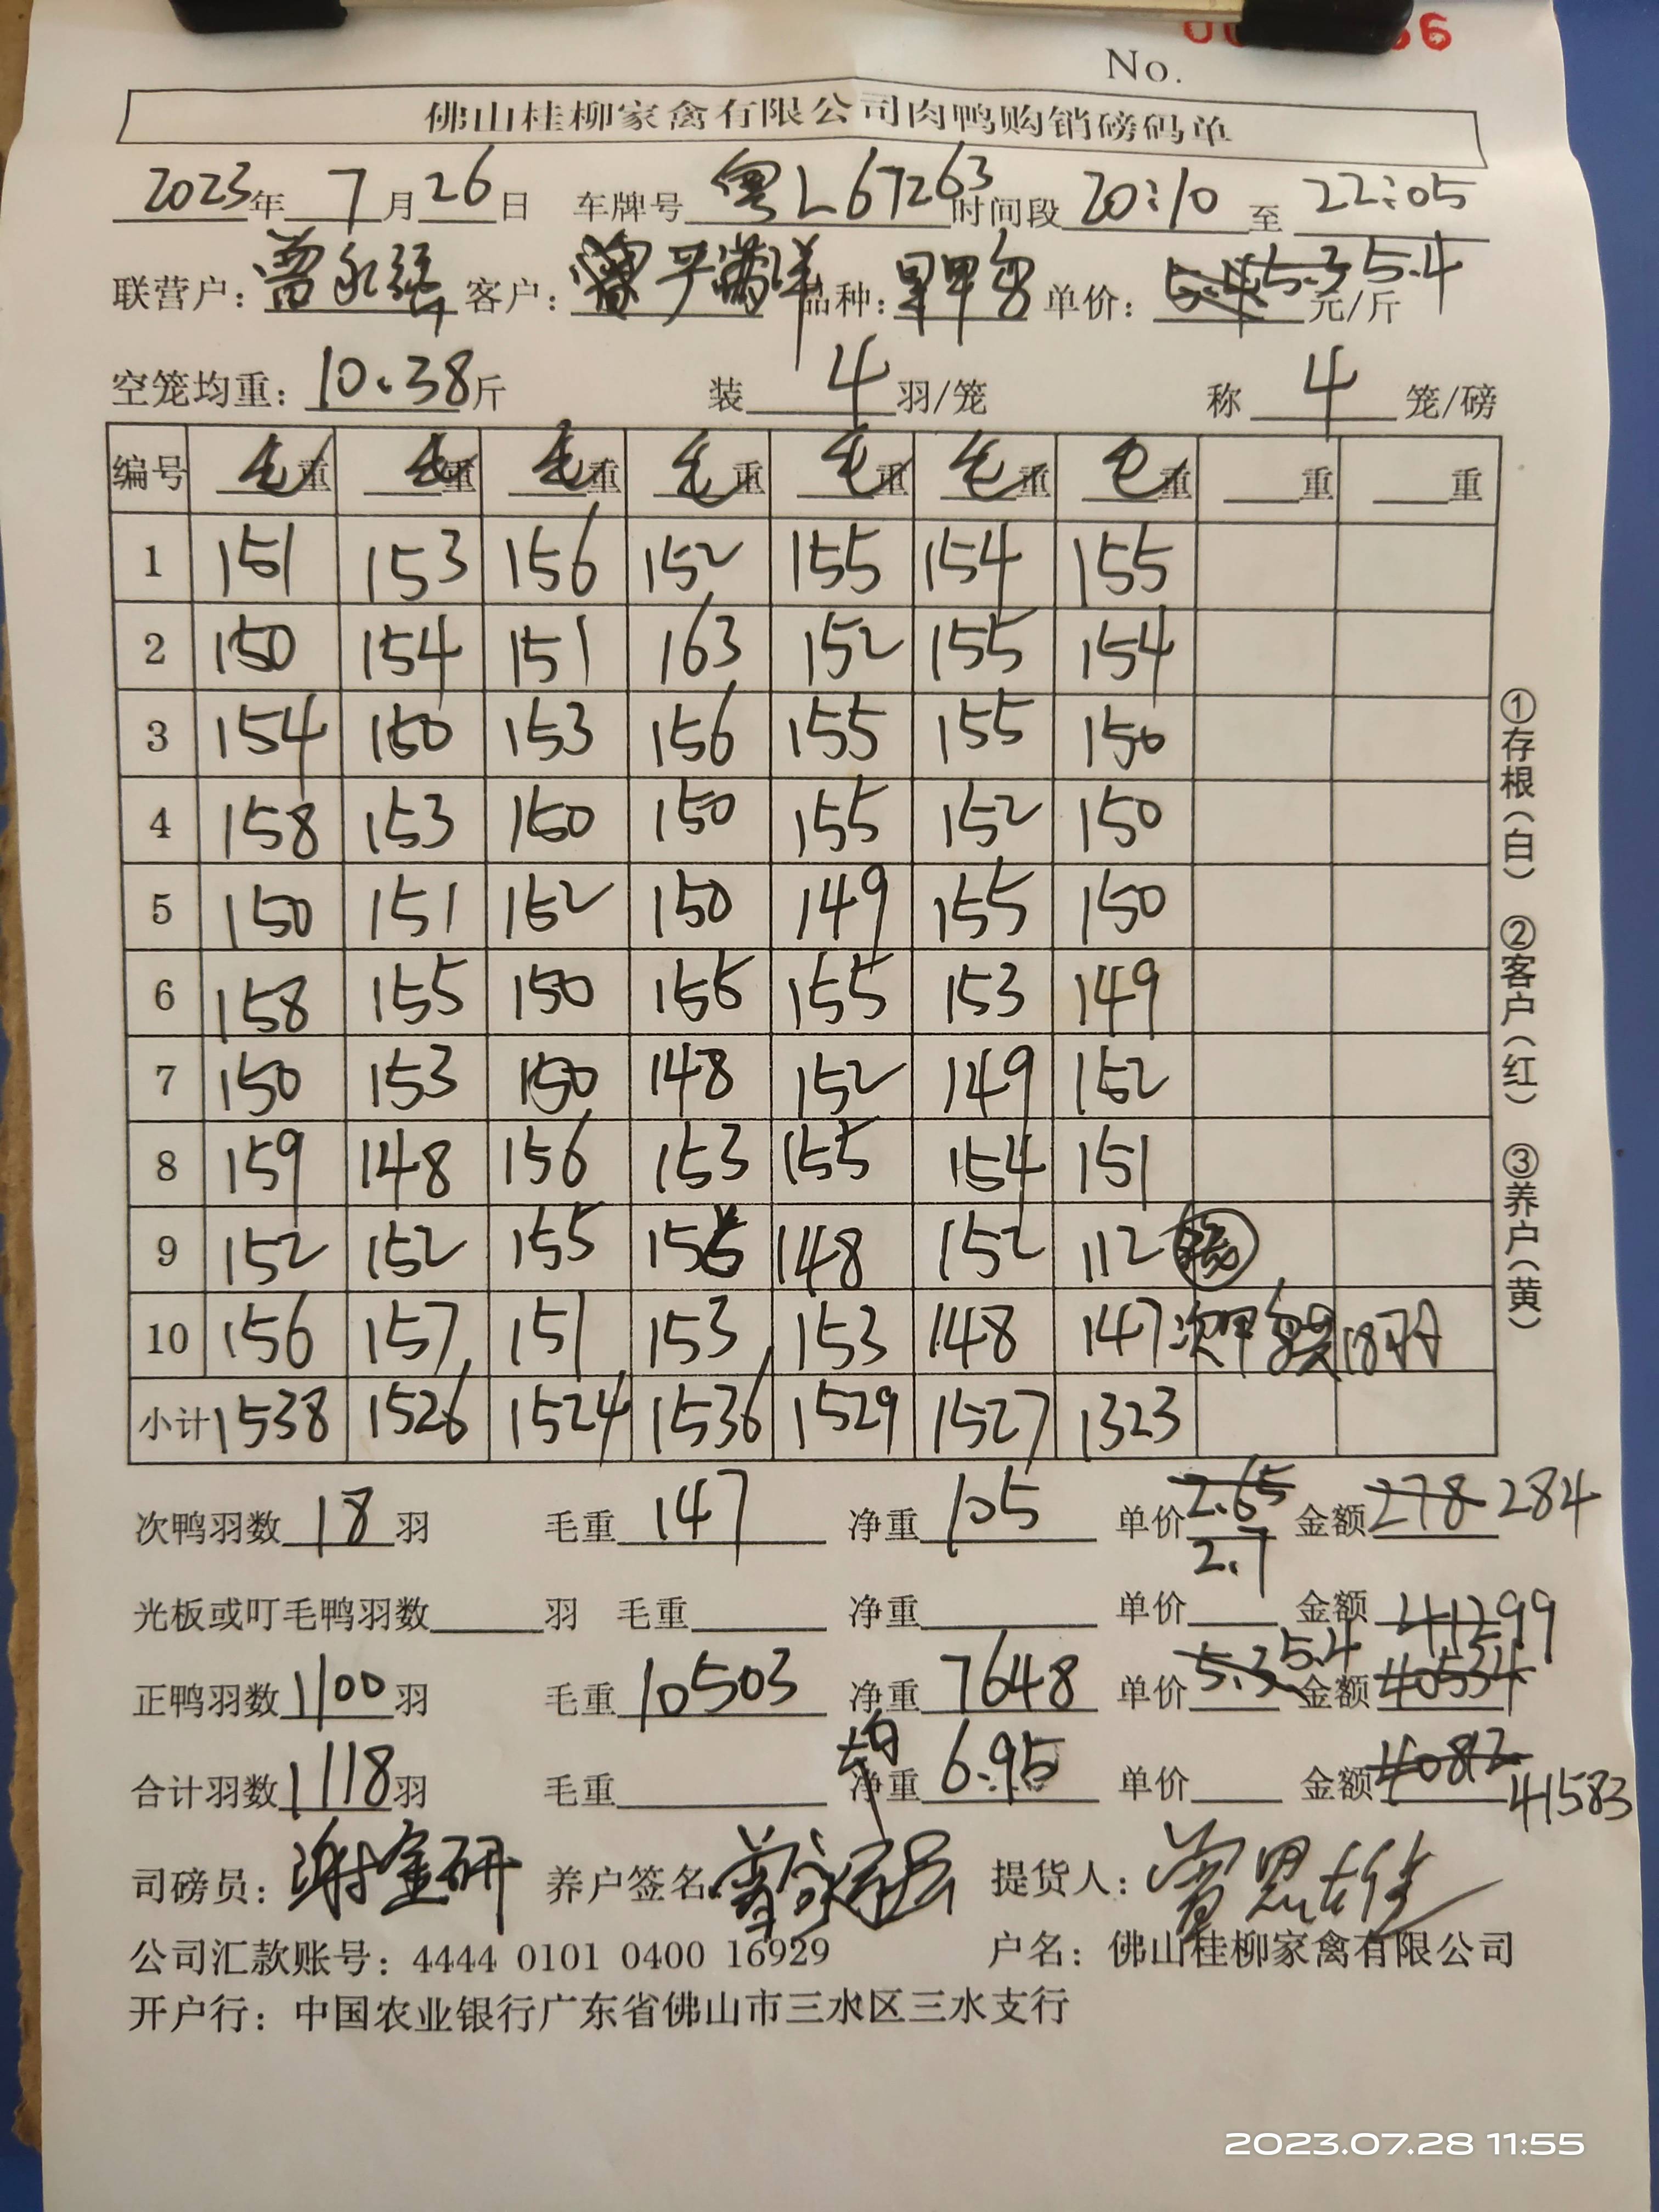 No.
佛山桂柳家禽有限公司肉鸭购销磅码单
2023年 7月26日 车牌号 粤L67263 时间段 20:10 至 22:05
联营户: 曾永强 客户: 品种: 单价: 5.3 5.4 元/斤
空笼均重: 10.38斤 装 4 羽/笼 称 4 笼/磅
编号 毛重 毛重 毛重 毛重 毛重 毛重 毛重 重 重
1 151 153 156 152 155 154 155
2 150 154 151 163 152 155 154
3 154 150 153 156 155 155 150
4 158 153 150 150 155 152 150
5 150 151 152 150 149 155 150
6 158 155 150 155 155 153 149
7 150 153 150 148 152 149 152
8 159 148 156 153 155 154 151
9 152 152 155 156 148 152 112
10 156 157 151 153 153 148 147 18羽
小计 1538 1526 1524 1536 1529 1527 1323
次鸭羽数 18 羽 毛重 147 净重 105 单价 2.65 2.7 金额 278 284
光板或叮毛鸭羽数 羽 毛重 净重 单价 金额 41299
正鸭羽数 1100 羽 毛重 10503 净重 7648 单价 5.3 5.4 金额 40534
合计羽数 1118 羽 毛重 均 净重 6.95 单价 金额 40812 41583
司磅员: 谢金研 养户签名: 曾永强 提货人: 曾思雄
公司汇款账号: 4444 0101 0400 16929 户名: 佛山桂柳家禽有限公司
开户行: 中国农业银行广东省佛山市三水区三水支行
①存根(白) ②客户(红) ③养户(黄)
2023.07.28 11:55